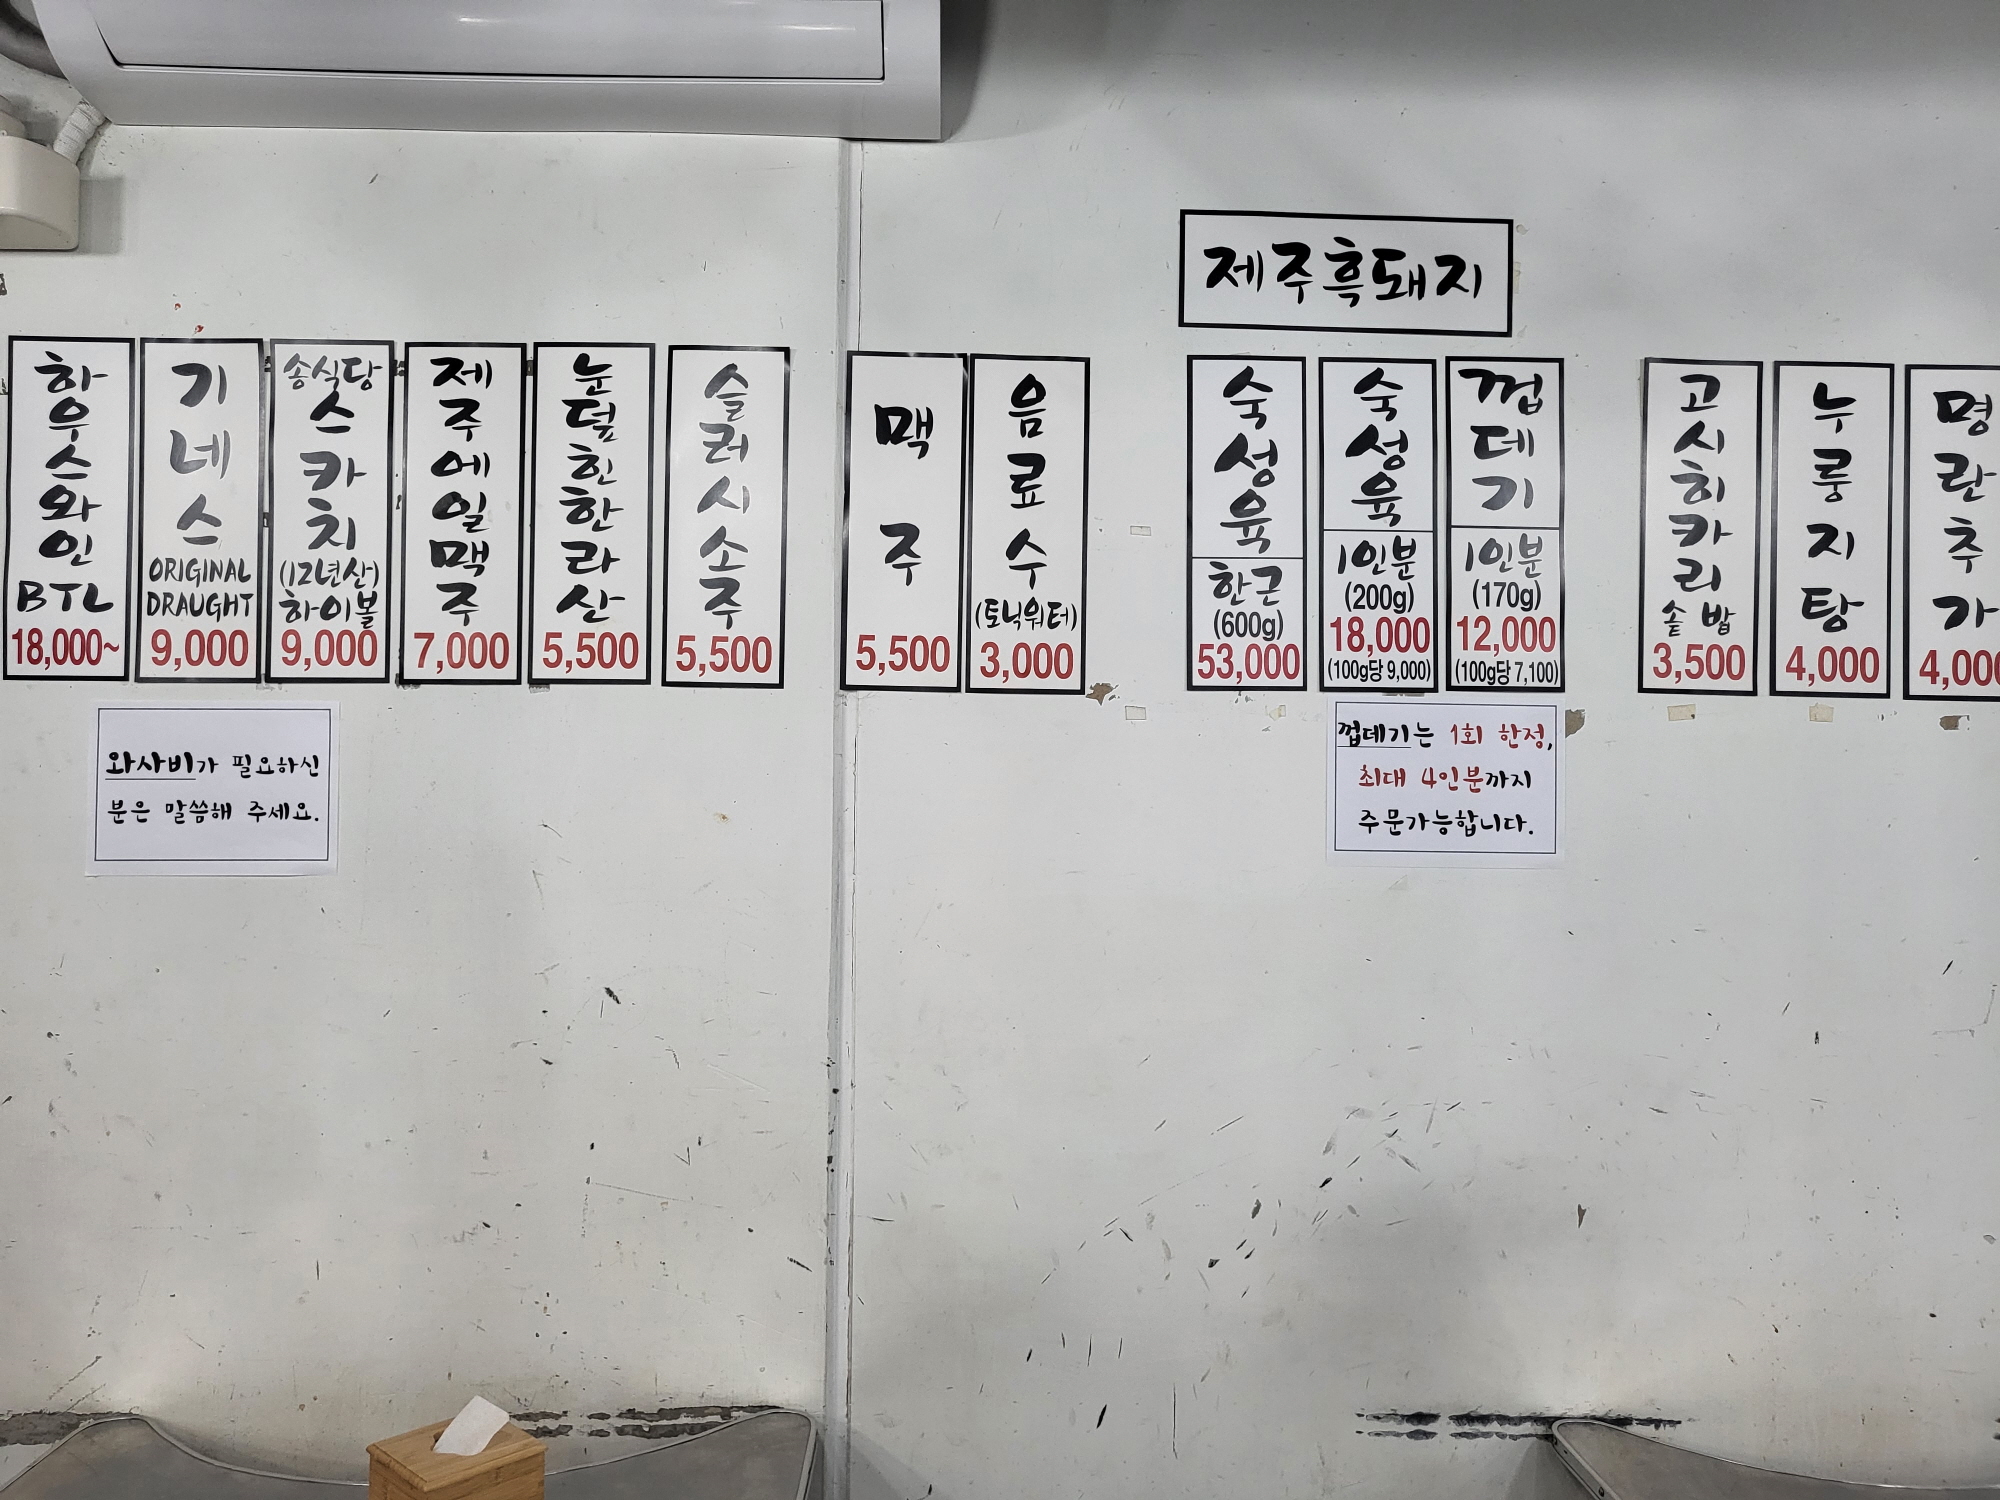 제주흑돼지
하우스와인
BTL
18,000~
기네스
ORIGINAL
DRAUGHT
9,000
송식당
스카치
(12년산)
하이볼
9,000
제주에일맥주
7,000
눈덮힌한라산
5,500
슬러시소주
5,500
맥주
5,500
음료수
(토닉워터)
3,000
숙성육
한근
(600g)
53,000
숙성육
1인분
(200g)
18,000
(100g당 9,000)
껍데기
1인분
(170g)
12,000
(100g당 7,100)
고시히카리
솥밥
3,500
누룽지탕
4,000
명란추가
4,000
와사비가 필요하신
분은 말씀해 주세요.
껍데기는 1회 한정,
최대 4인분까지
주문가능합니다.